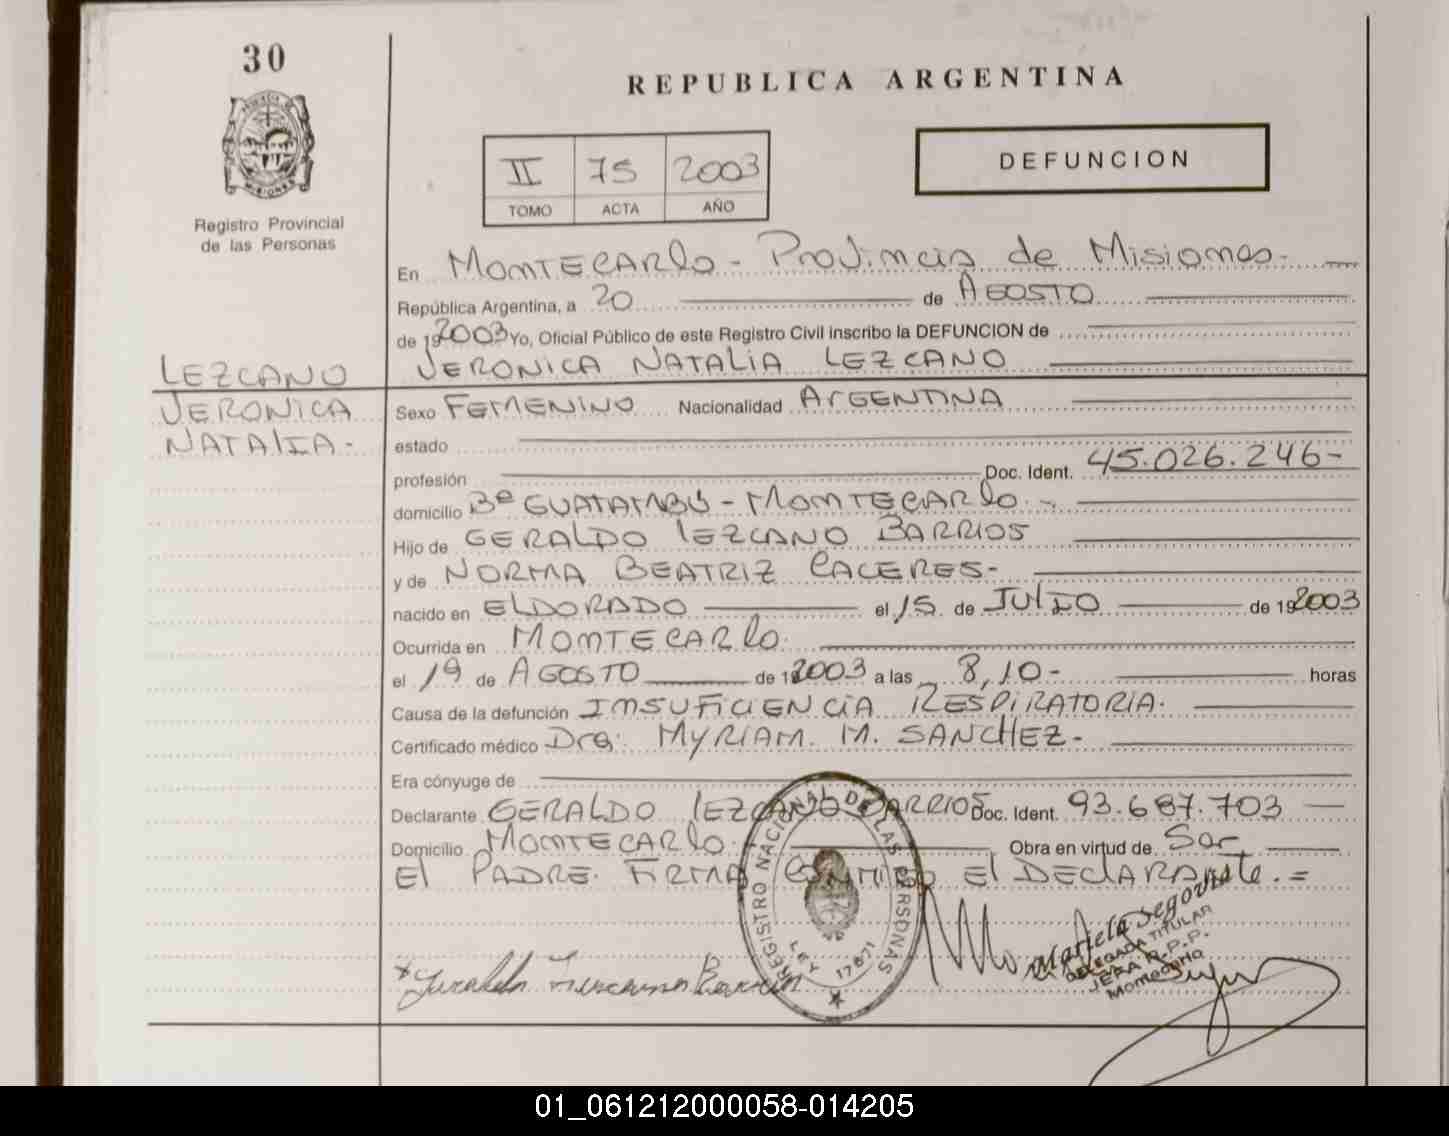 30
REPUBLICA ARGENTINA
II 75 2003
TOMO ACTA AÑO
DEFUNCION
Registro Provincial
de las Personas
En MONTECARLO - Provincia de Misiones.
República Argentina, a 20 de AGOSTO
de 192003 Yo, Oficial Público de este Registro Civil inscribo la DEFUNCION de
VERONICA NATALIA LEZCANO
LEZCANO
VERONICA
NATALIA -
Sexo FEMENINO Nacionalidad ARGENTINA
estado
profesión Doc. Ident. 45.026.246-
domicilio Bº GUATAMBÚ - MONTECARLO.
Hijo de GERALDO LEZCANO BARRIOS
y de NORMA BEATRIZ CACERES-
nacido en ELDORADO el 15 de JULIO de 192003
Ocurrida en MONTECARLO.
el 19 de AGOSTO de 192003 a las 8,10- horas
Causa de la defunción INSUFICIENCIA RESPIRATORIA.
Certificado médico Dra: MYRIAM. M. SANCHEZ-
Era cónyuge de
Declarante GERALDO LEZCANO BARRIOS Doc. Ident. 93.687.703
Domicilio MONTECARLO. Obra en virtud de Ser
El PADRE. FIRMA CONMIGO El DECLARANTE.=
REGISTRO NACIONAL DE LAS PERSONAS
LEY 17671
Mariela Segovia
DELEGADA TITULAR
JERA R.P.P.
Montecarlo
01_061212000058-014205